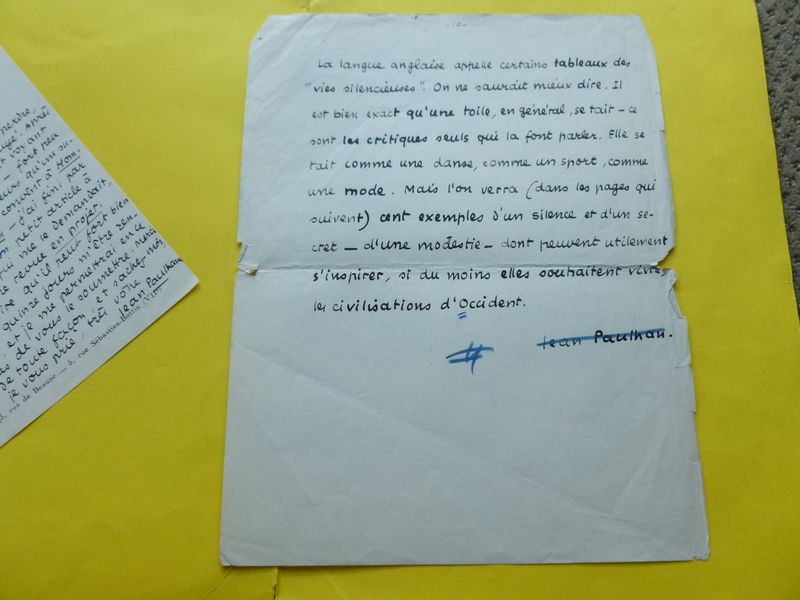 nerdre,
. Après
t voyant
— fort peu
eurs qu'une su-
convent à Hom-
— j'ai fini par
on petit article à
tu me le demandait,
ne revue en projet.
ire qu'il peut fort bien
quinze jours m'être ren-
et je me permettrai en ce
as de vous le soumettre. Merci
de toute façon, et sachez-moi,
je vous prie, très vôtre
Jean Paulhan
5, rue de Beaune — 5, rue Sébastien-Bottin (VIIe)
- 10 -
La langue anglaise appelle certains tableaux des
"vies silencieuses". On ne saurait mieux dire. Il
est bien exact qu'une toile, en général, se tait — ce
sont les critiques seuls qui la font parler. Elle se
tait comme une danse, comme un sport, comme
une mode. Mais l'on verra (dans les pages qui
suivent) cent exemples d'un silence et d'un se-
cret — d'une modestie — dont peuvent utilement
s'inspirer, si du moins elles souhaitent vivre,
les civilisations d'Occident.
Jean Paulhan.